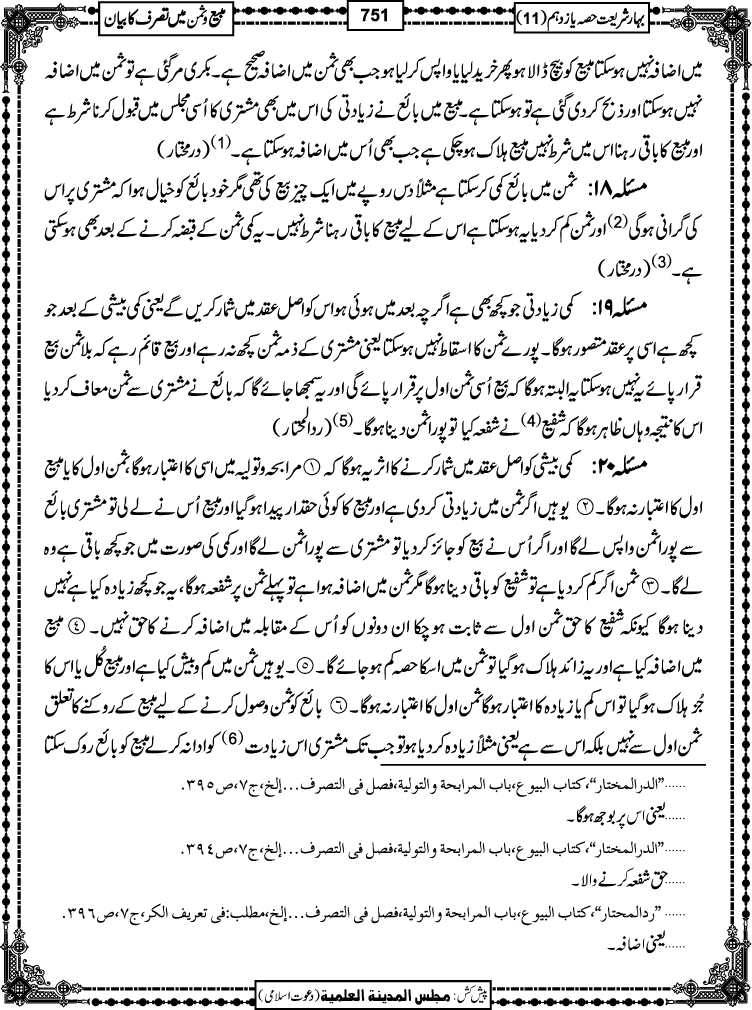 بہار شریعت حصہ یازدہم (11)
751
مبیع و ثمن میں تصرف کا بیان
میں اضافہ نہیں ہوسکتا مبیع کو بیچ ڈالا ہو پھر خرید لیا یا واپس کرلیا ہو جب بھی ثمن میں اضافہ صحیح ہے۔ بکری مرگئی ہے تو ثمن میں اضافہ
نہیں ہوسکتا اور ذبح کردی گئی ہے تو ہوسکتا ہے۔ مبیع میں بائع نے زیادتی کی اس میں بھی مشتری کا اُسی مجلس میں قبول کرنا شرط ہے
اور مبیع کا باقی رہنا اس میں شرط نہیں مبیع ہلاک ہوچکی ہے جب بھی اُس میں اضافہ ہوسکتا ہے۔(1) (درمختار)
مسئلہ ۱۸: ثمن میں بائع کمی کرسکتا ہے مثلاً دس روپے میں ایک چیز بیع کی تھی مگر خود بائع کو خیال ہوا کہ مشتری پر اس
کی گرانی ہوگی(2) اور ثمن کم کردیا یہ ہوسکتا ہے اس کے لیے مبیع کا باقی رہنا شرط نہیں۔ یہ کمی ثمن کے قبضہ کرنے کے بعد بھی ہوسکتی
ہے۔(3) (درمختار)
مسئلہ ۱۹: کمی زیادتی جو کچھ بھی ہے اگرچہ بعد میں ہوئی ہو اس کو اصل عقد میں شمار کریں گے یعنی کمی بیشی کے بعد جو
کچھ ہے اسی پر عقد متصور ہوگا۔ پورے ثمن کا اسقاط نہیں ہوسکتا یعنی مشتری کے ذمہ ثمن کچھ نہ رہے اور بیع قائم رہے کہ بلا ثمن بیع
قرار پائے یہ نہیں ہوسکتا یہ البتہ ہوگا کہ بیع اُسی ثمن اول پر قرار پائے گی اور یہ سمجھا جائے گا کہ بائع نے مشتری سے ثمن معاف کردیا
اس کا نتیجہ وہاں ظاہر ہوگا کہ شفیع(4) نے شفعہ کیا تو پورا ثمن دینا ہوگا۔(5) (ردالمحتار)
مسئلہ ۲۰: کمی بیشی کو اصل عقد میں شمار کرنے کا اثر یہ ہوگا کہ ① مرابحہ و تولیہ میں اسی کا اعتبار ہوگا، ثمن اول کا یا مبیع
اول کا اعتبار نہ ہوگا۔ ② یوہیں اگر ثمن میں زیادتی کردی ہے اور مبیع کا کوئی حقدار پیدا ہوگیا اور مبیع اُس نے لے لی تو مشتری بائع
سے پورا ثمن واپس لے گا اور اگر اُس نے بیع کو جائز کردیا تو مشتری سے پورا ثمن لے گا اور کمی کی صورت میں جو کچھ باقی ہے وہ
لے گا۔ ③ ثمن اگر کم کردیا ہے تو شفیع کو باقی دینا ہوگا مگر ثمن میں اضافہ ہوا ہے تو پہلے ثمن پر شفعہ ہوگا، یہ جو کچھ زیادہ کیا ہے نہیں
دینا ہوگا کیونکہ شفیع کا حق ثمن اول سے ثابت ہوچکا ان دونوں کو اُس کے مقابلہ میں اضافہ کرنے کا حق نہیں۔ ④ مبیع
میں اضافہ کیا ہے اور یہ زائد ہلاک ہوگیا تو ثمن میں اسکا حصہ کم ہوجائے گا۔ ⑤۔ یوہیں ثمن میں کم و بیش کیا ہے اور مبیع کُل یا اس کا
جز ہلاک ہوگیا تو اس کم یا زیادہ کا اعتبار ہوگا ثمن اول کا اعتبار نہ ہوگا۔ ⑥ بائع کو ثمن وصول کرنے کے لیے مبیع کے روکنے کا تعلق
ثمن اول سے نہیں بلکہ اس سے ہے یعنی مثلاً زیادہ کردیا ہو تو جب تک مشتری اس زیادت(6) کو ادا نہ کرلے مبیع کو بائع روک سکتا
......"الدرالمختار"، کتاب البیوع، باب المرابحة والتولیة، فصل فی التصرف...إلخ، ج۷، ص۳۹۵.
......یعنی اس پر بوجھ ہوگا۔
......"الدرالمختار"، کتاب البیوع، باب المرابحة والتولیة، فصل فی التصرف...إلخ، ج۷، ص۳۹٤.
......حق شفعہ کرنے والا۔
...... "ردالمحتار"، کتاب البیوع، باب المرابحة والتولیة، فصل فی التصرف...إلخ، مطلب: فی تعریف الکر، ج۷، ص۳۹٦.
......یعنی اضافہ۔
پیش کش: مجلس المدینة العلمیة (دعوت اسلامی)